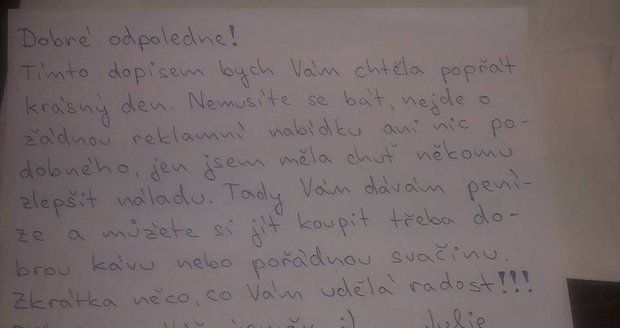 Dobré odpoledne!
Tímto dopisem bych Vám chtěla popřát
krásný den. Nemusíte se bát, nejde o
žádnou reklamní nabídku ani nic po-
dobného, jen jsem měla chuť někomu
zlepšit náladu. Tady Vám dávám pení-
ze a můžete si jít koupit třeba do-
brou kávu nebo pořádnou svačinu.
Zkrátka něco, co Vám udělá radost!!!